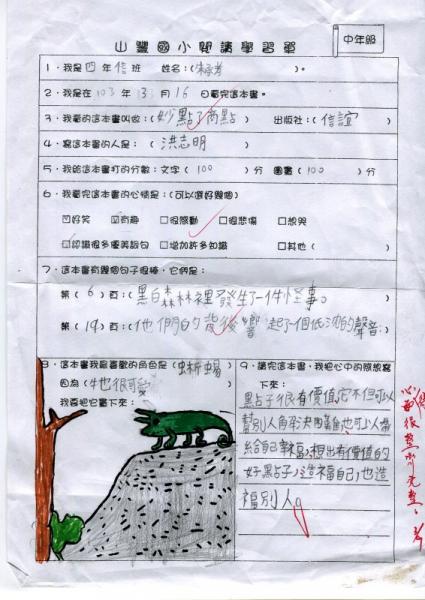 山豐國小閱讀學習單
中年級
1、我是四年信班 姓名:( )。
2、我是在103年3月16日看完這本書。
3、我看的書叫做:(妙點子商店) 出版社:(信誼)
4、寫這本書的人是:(洪志明)
5、我給這本書打的分數:文字(100)分 圖畫(100)分
6、我看完這本書的心情是:(可以選好幾個)
☑好笑 ☑有趣 □很感動 □很悲傷 □想哭
☑認識很多優美詞句 □增加許多知識 □其他( )
7、這本書有幾個句子很棒,它們是:
第(6)頁:(黑白森林裡發生了一件怪事。)
第(19)頁:(他們的背後響起了一個低沈的聲音)
8、這本書我最喜歡的角色是(蜥蜴)
因為(牠很可愛)
我要把它畫下來:
9、讀完這本書,我把心中的感想寫
下來:
點子很有價值,它不但可以
幫別人解決困難,也可以帶
給自己幸福,想出有價值的
好點子,造福自己,也造
福別人。